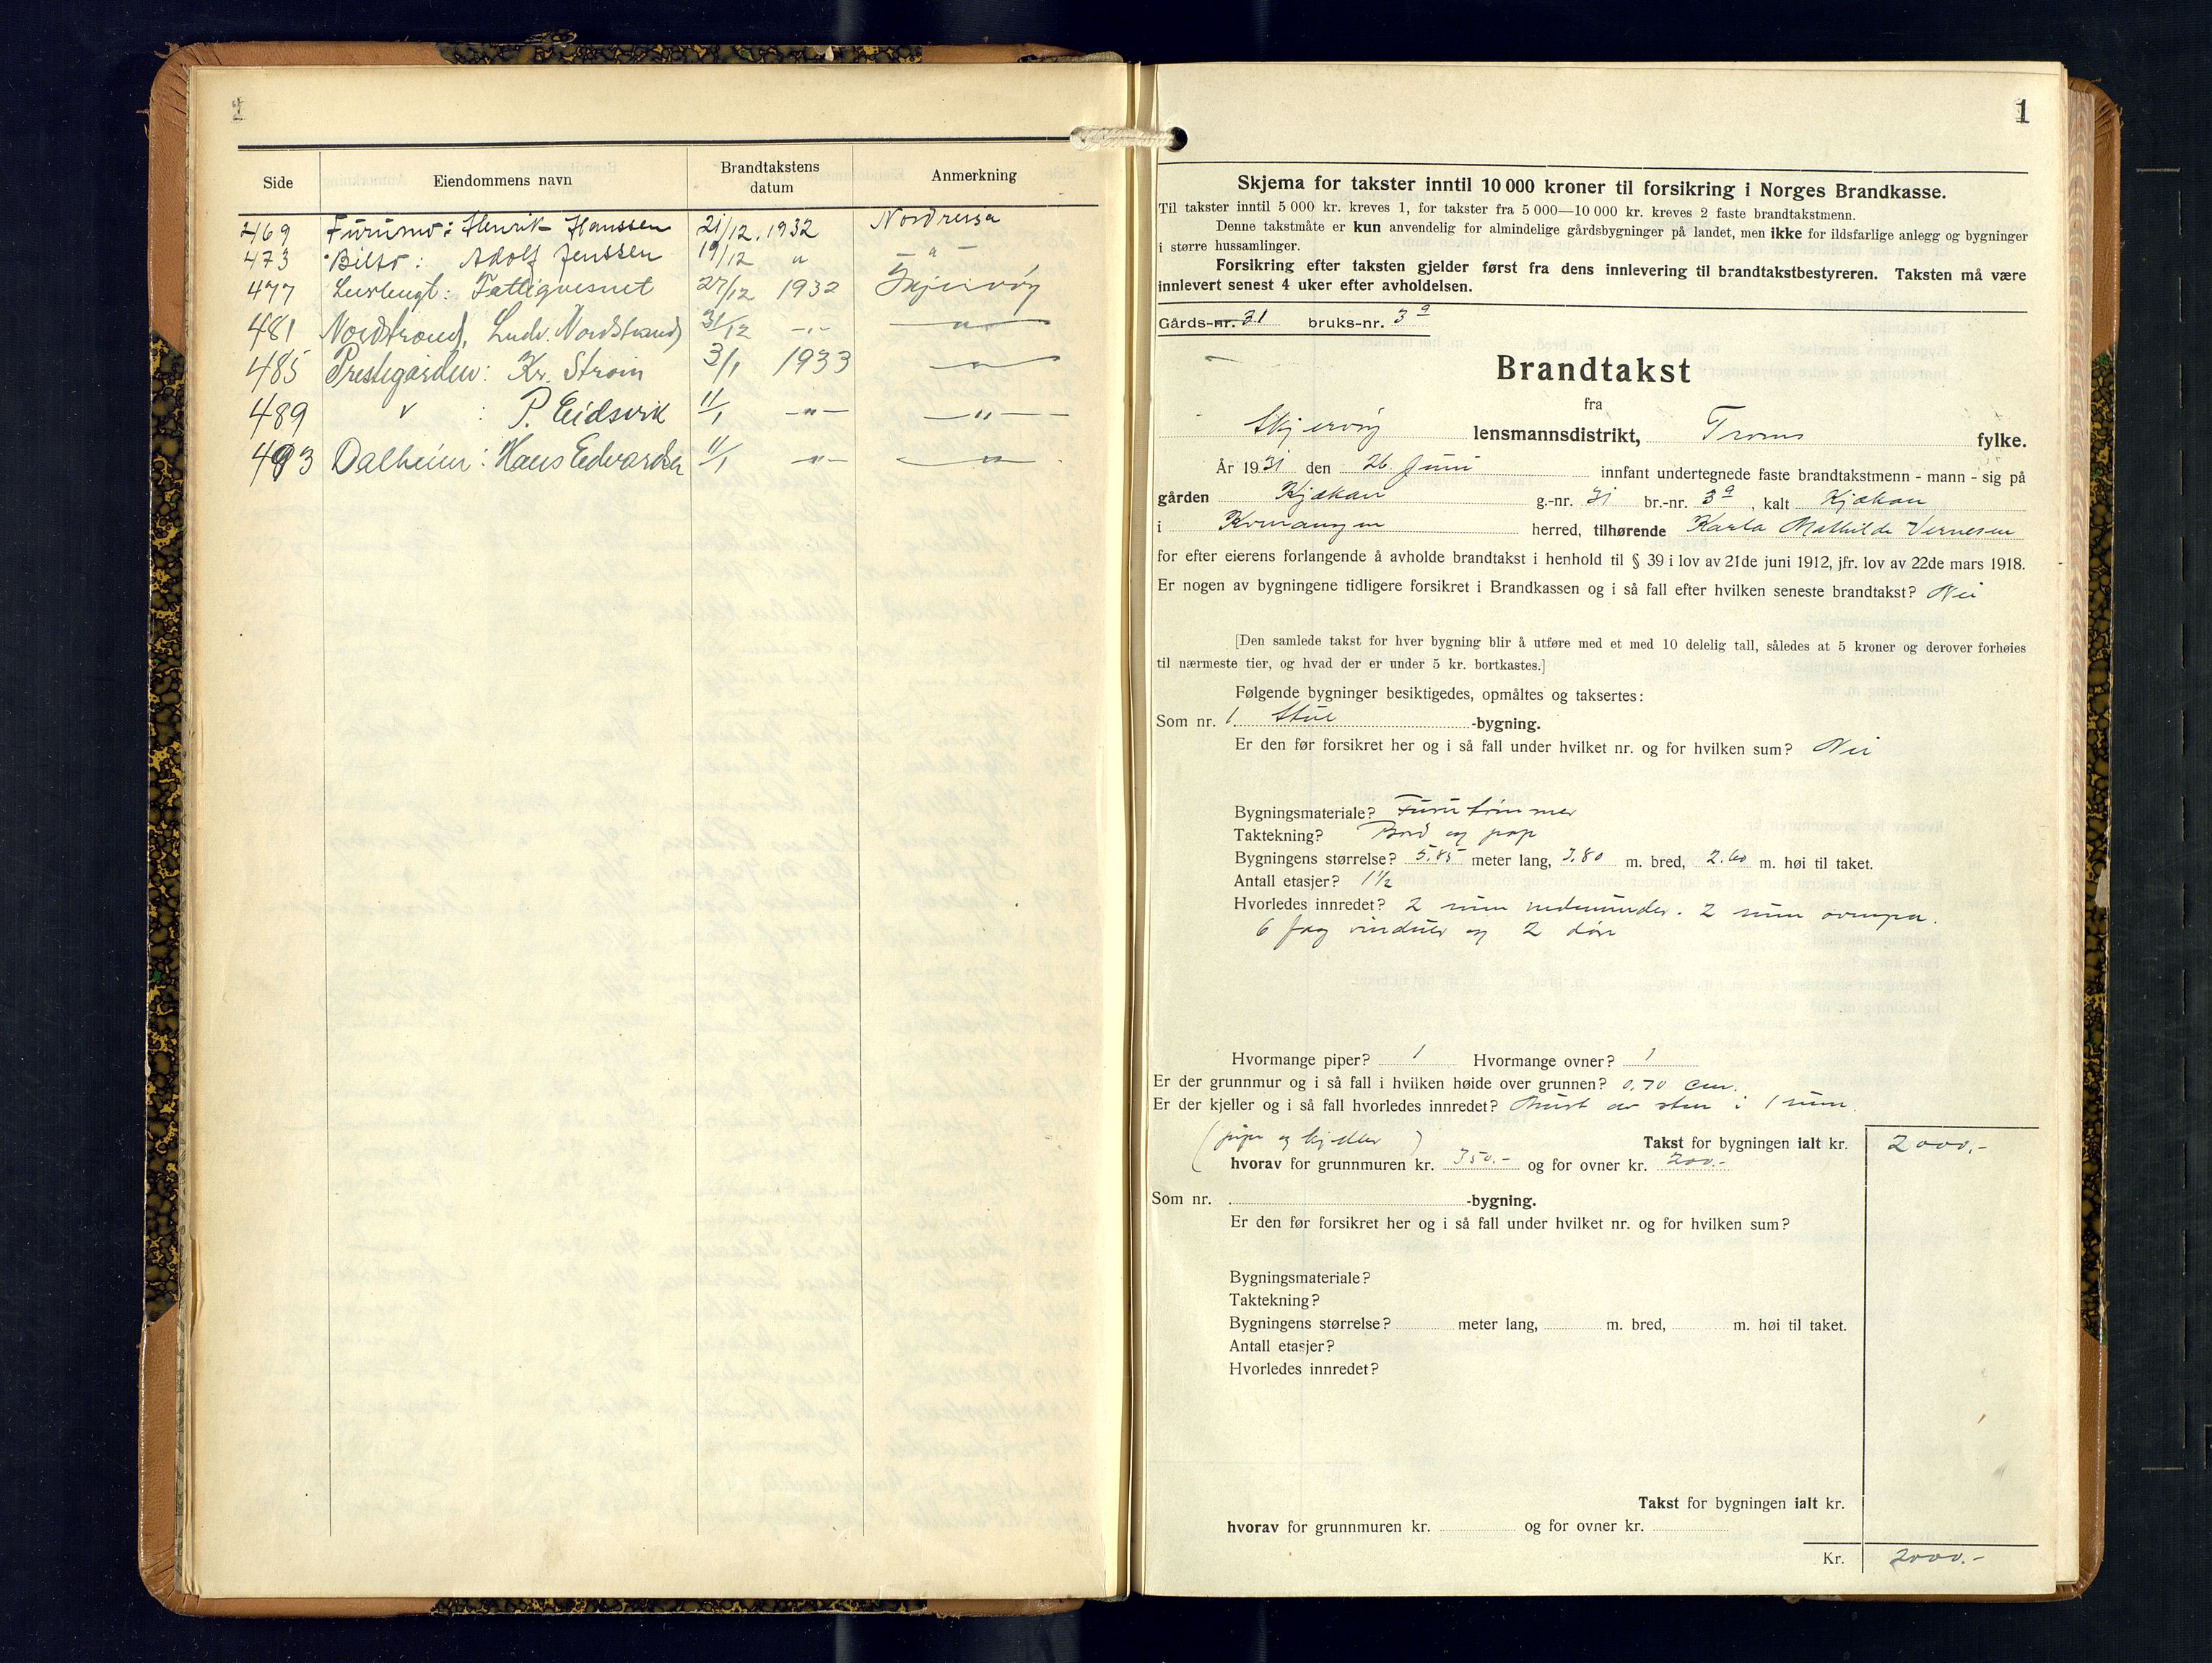 Side Eiendommens navn Brandtakstens datum Anmerkning
469 Furumo: Henrik Hanssen 21/12. 1932 Nordreisa
473 Bilto: Adolf Jenssen 19/12 " — " —
477 : Fattigvesnet 27/12 1932 Skjervøy
481 Nordstrand, Ludv. Nordstrand 31/12 —"— — " —
485 Prestegården: Kr. Strøm 3/1 1933 — " —
489 " : P. Eidsvik 11/1 —"— — " —
493 Dalheim: Hans Edvardsen 11/1 —"— — " —
1
Skjema for takster inntil 10 000 kroner til forsikring i Norges Brandkasse.
Til takster inntil 5 000 kr. kreves 1, for takster fra 5 000—10 000 kr. kreves 2 faste brandtakstmenn.
Denne takstmåte er kun anvendelig for almindelige gårdsbygninger på landet, men ikke for ildsfarlige anlegg og bygninger
i større hussamlinger.
Forsikring efter taksten gjelder først fra dens innlevering til brandtakstbestyreren. Taksten må være
innlevert senest 4 uker efter avholdelsen.
Gårds-nr. 31 bruks-nr. 3 a
Brandtakst
fra
Skjervøy lensmannsdistrikt, Troms fylke.
År 1931 den 26 Juni innfant undertegnede faste brandtakstmenn - mann - sig på
gården Kjækan g.-nr. 31 br.-nr. 3 a, kalt Kjækan
i Kvænangen herred, tilhørende Karla Mathilde Vernesen
for efter eierens forlangende å avholde brandtakst i henhold til § 39 i lov av 21de juni 1912, jfr. lov av 22de mars 1918.
Er nogen av bygningene tidligere forsikret i Brandkassen og i så fall efter hvilken seneste brandtakst? Nei
[Den samlede takst for hver bygning blir å utføre med et med 10 delelig tall, således at 5 kroner og derover forhøies
til nærmeste tier, og hvad der er under 5 kr. bortkastes.]
Følgende bygninger besiktigedes, opmåltes og taksertes:
Som nr. 1. Stue -bygning.
Er den før forsikret her og i så fall under hvilket nr. og for hvilken sum? Nei
Bygningsmateriale? Furutømmer
Taktekning? Bord og pap
Bygningens størrelse? 5.85 meter lang, 3.80 m. bred, 2.60 m. høi til taket.
Antall etasjer? 1 1/2
Hvorledes innredet? 2 rum nedenunder. 2 rum ovenpå.
6 fag vinduer og 2 dører
Hvormange piper? 1 Hvormange ovner? 1
Er der grunnmur og i så fall i hvilken høide over grunnen? 0.70 cm.
Er der kjeller og i så fall hvorledes innredet? Muret av sten i 1 rum.
(pipe og kjeller) Takst for bygningen ialt kr. 2000.-
hvorav for grunnmuren kr. 350.- og for ovner kr. 200.-
Som nr. -bygning.
Er den før forsikret her og i så fall under hvilket nr. og for hvilken sum?
Bygningsmateriale?
Taktekning?
Bygningens størrelse? meter lang, m. bred, m. høi til taket.
Antall etasjer?
Hvorledes innredet?
Takst for bygningen ialt kr.
hvorav for grunnmuren kr. og for ovner kr.
Kr. 2000.-